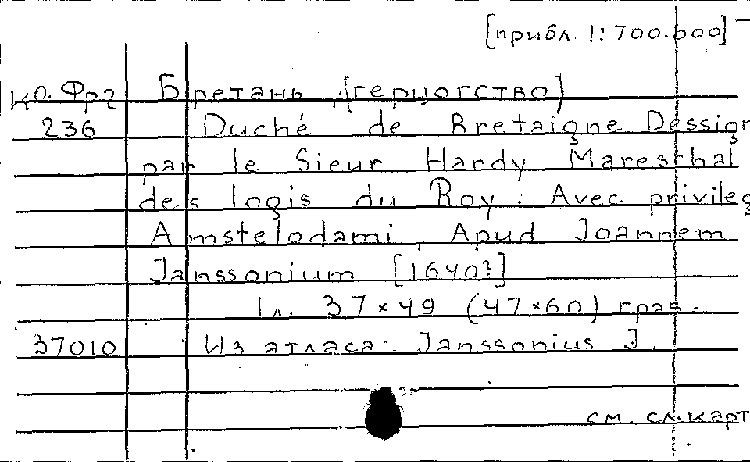 [прибл. 1:700.000]
Ко. Фрг Бретань (герцогство)
236 Duché de Bretaigne Dessign
par le Sieur Hardy Mareschal
des logis du Roy. Avec privileg
Amstelodami, Apud Joannem
Janssonium [1640?]
1 л. 37×49 (47×60) грав.
37010 Из атласа: Janssonius J.
см. сл. карт